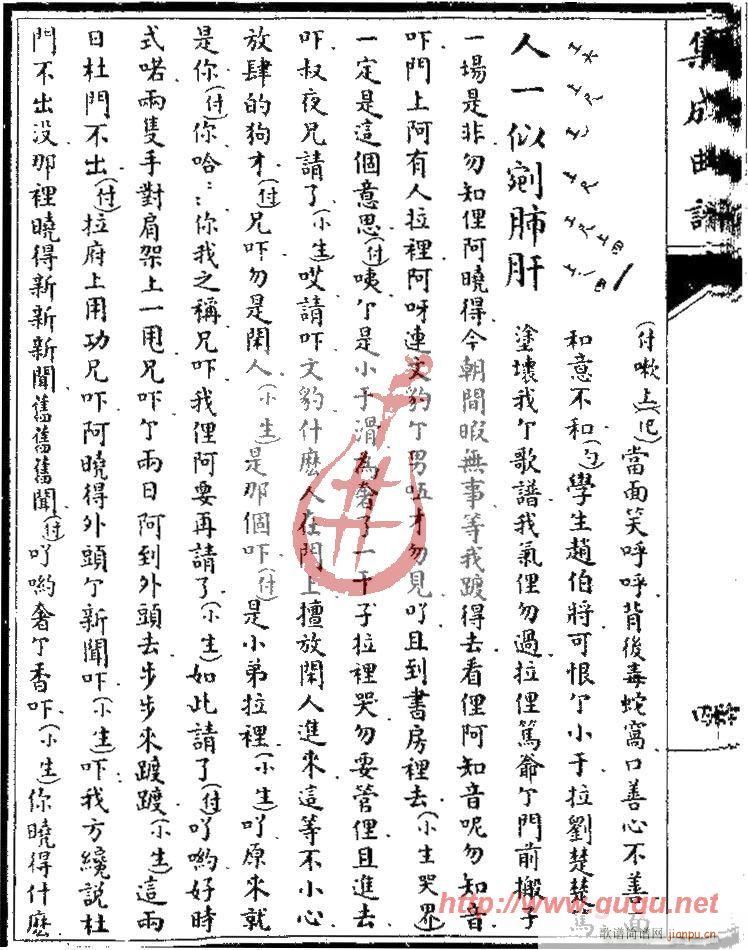 集成曲譜
人一似剜肺肝
(付嗽上)(念)當面笑呼呼背後毒蛇窩口善心不善
和意不和(白)學生趙伯將可恨个小于拉劉楚楚
塗壞我个歌譜我氣俚勿過拉俚篤爺个門前搬子
一場是非勿知俚阿曉得今朝間暇無事等我踱得去看俚阿知音呢勿知音
吓門上阿有人拉裡阿呀連文豹个男呸才勿見吖且到書房裡去(小生哭界)
一定是這個意思(付)咦个是小于滑為奢了一干子拉裡哭勿要管俚且進去
吓叔夜兄請了(小生)哎請吓文豹什麽人在門上擅放閑人進來這等不小心
放肆的狗才(付)兄吓勿是閑人(小生)是那個吓(付)是小弟拉裡(小生)吖原來就
是你(付)你哈⋮你我之稱兄吓我俚阿要再請了(小生)如此請了(付)吖喲好時
式喏兩隻手對肩架上一甩兄吓个兩日阿到外頭去步步來踱踱(小生)這兩
日杜門不出(付)拉府上用功兄吓阿曉得外頭个新聞吓(小生)吓我方纔説杜
門不出没那裡曉得新新新聞舊舊舊聞(付)吖喲奢个香吓(小生)你曉得什麽
http://www.gugu.net
歌谱简谱网 jianpu.cn